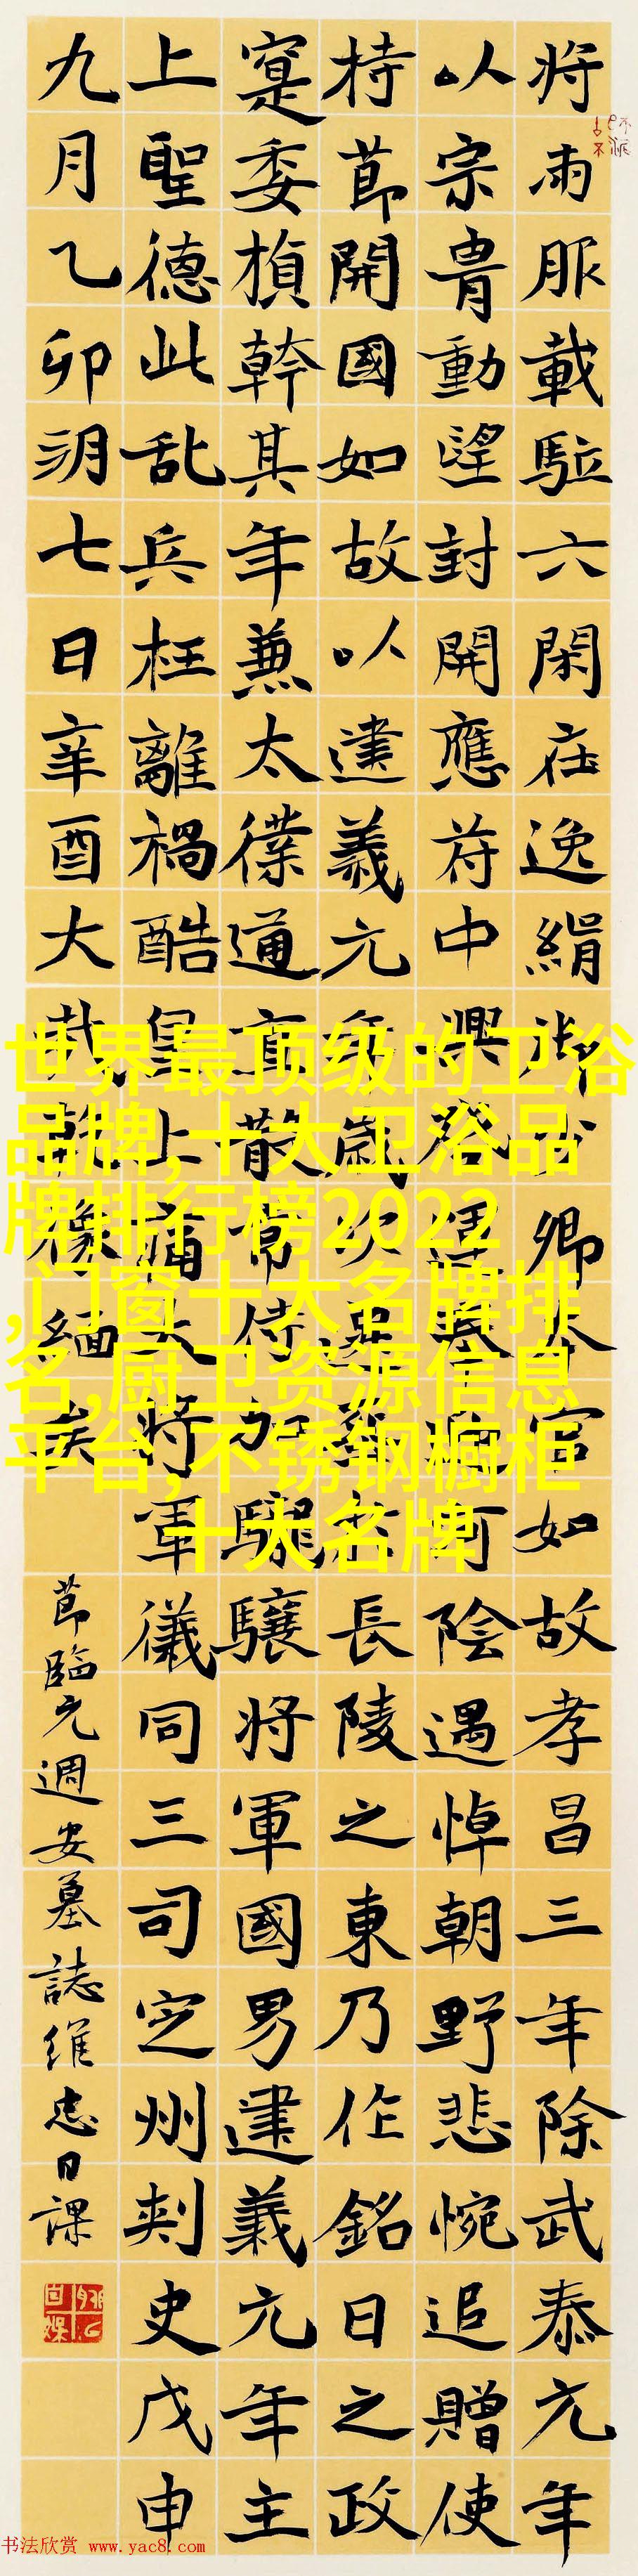 将兩服載駈六閑在逸絹
卿
官如故孝昌三年除武泰元年
以宗胄動望封開應符中興
河陰遇悼朝野悲惋追贈使
持節開國如故以建義元年歲次
長陵之東乃作銘曰之政
寔委楨幹其年兼太僕通直散常侍加
驤將軍國男建義元年主
上聖德此乱兵枉離禍酷皇上痛
將軍儀同三司定州刺史戊申
九月乙卯朔七日辛酉大
緬
節臨元週安墓誌維忠日課
世界最顶级的卫浴
品牌,十大卫浴品
牌排行榜2022
,门窗十大名牌排
名,厨卫资源信息
平台,不锈钢橱柜
十大名牌
书法欣赏 www.yac8.com